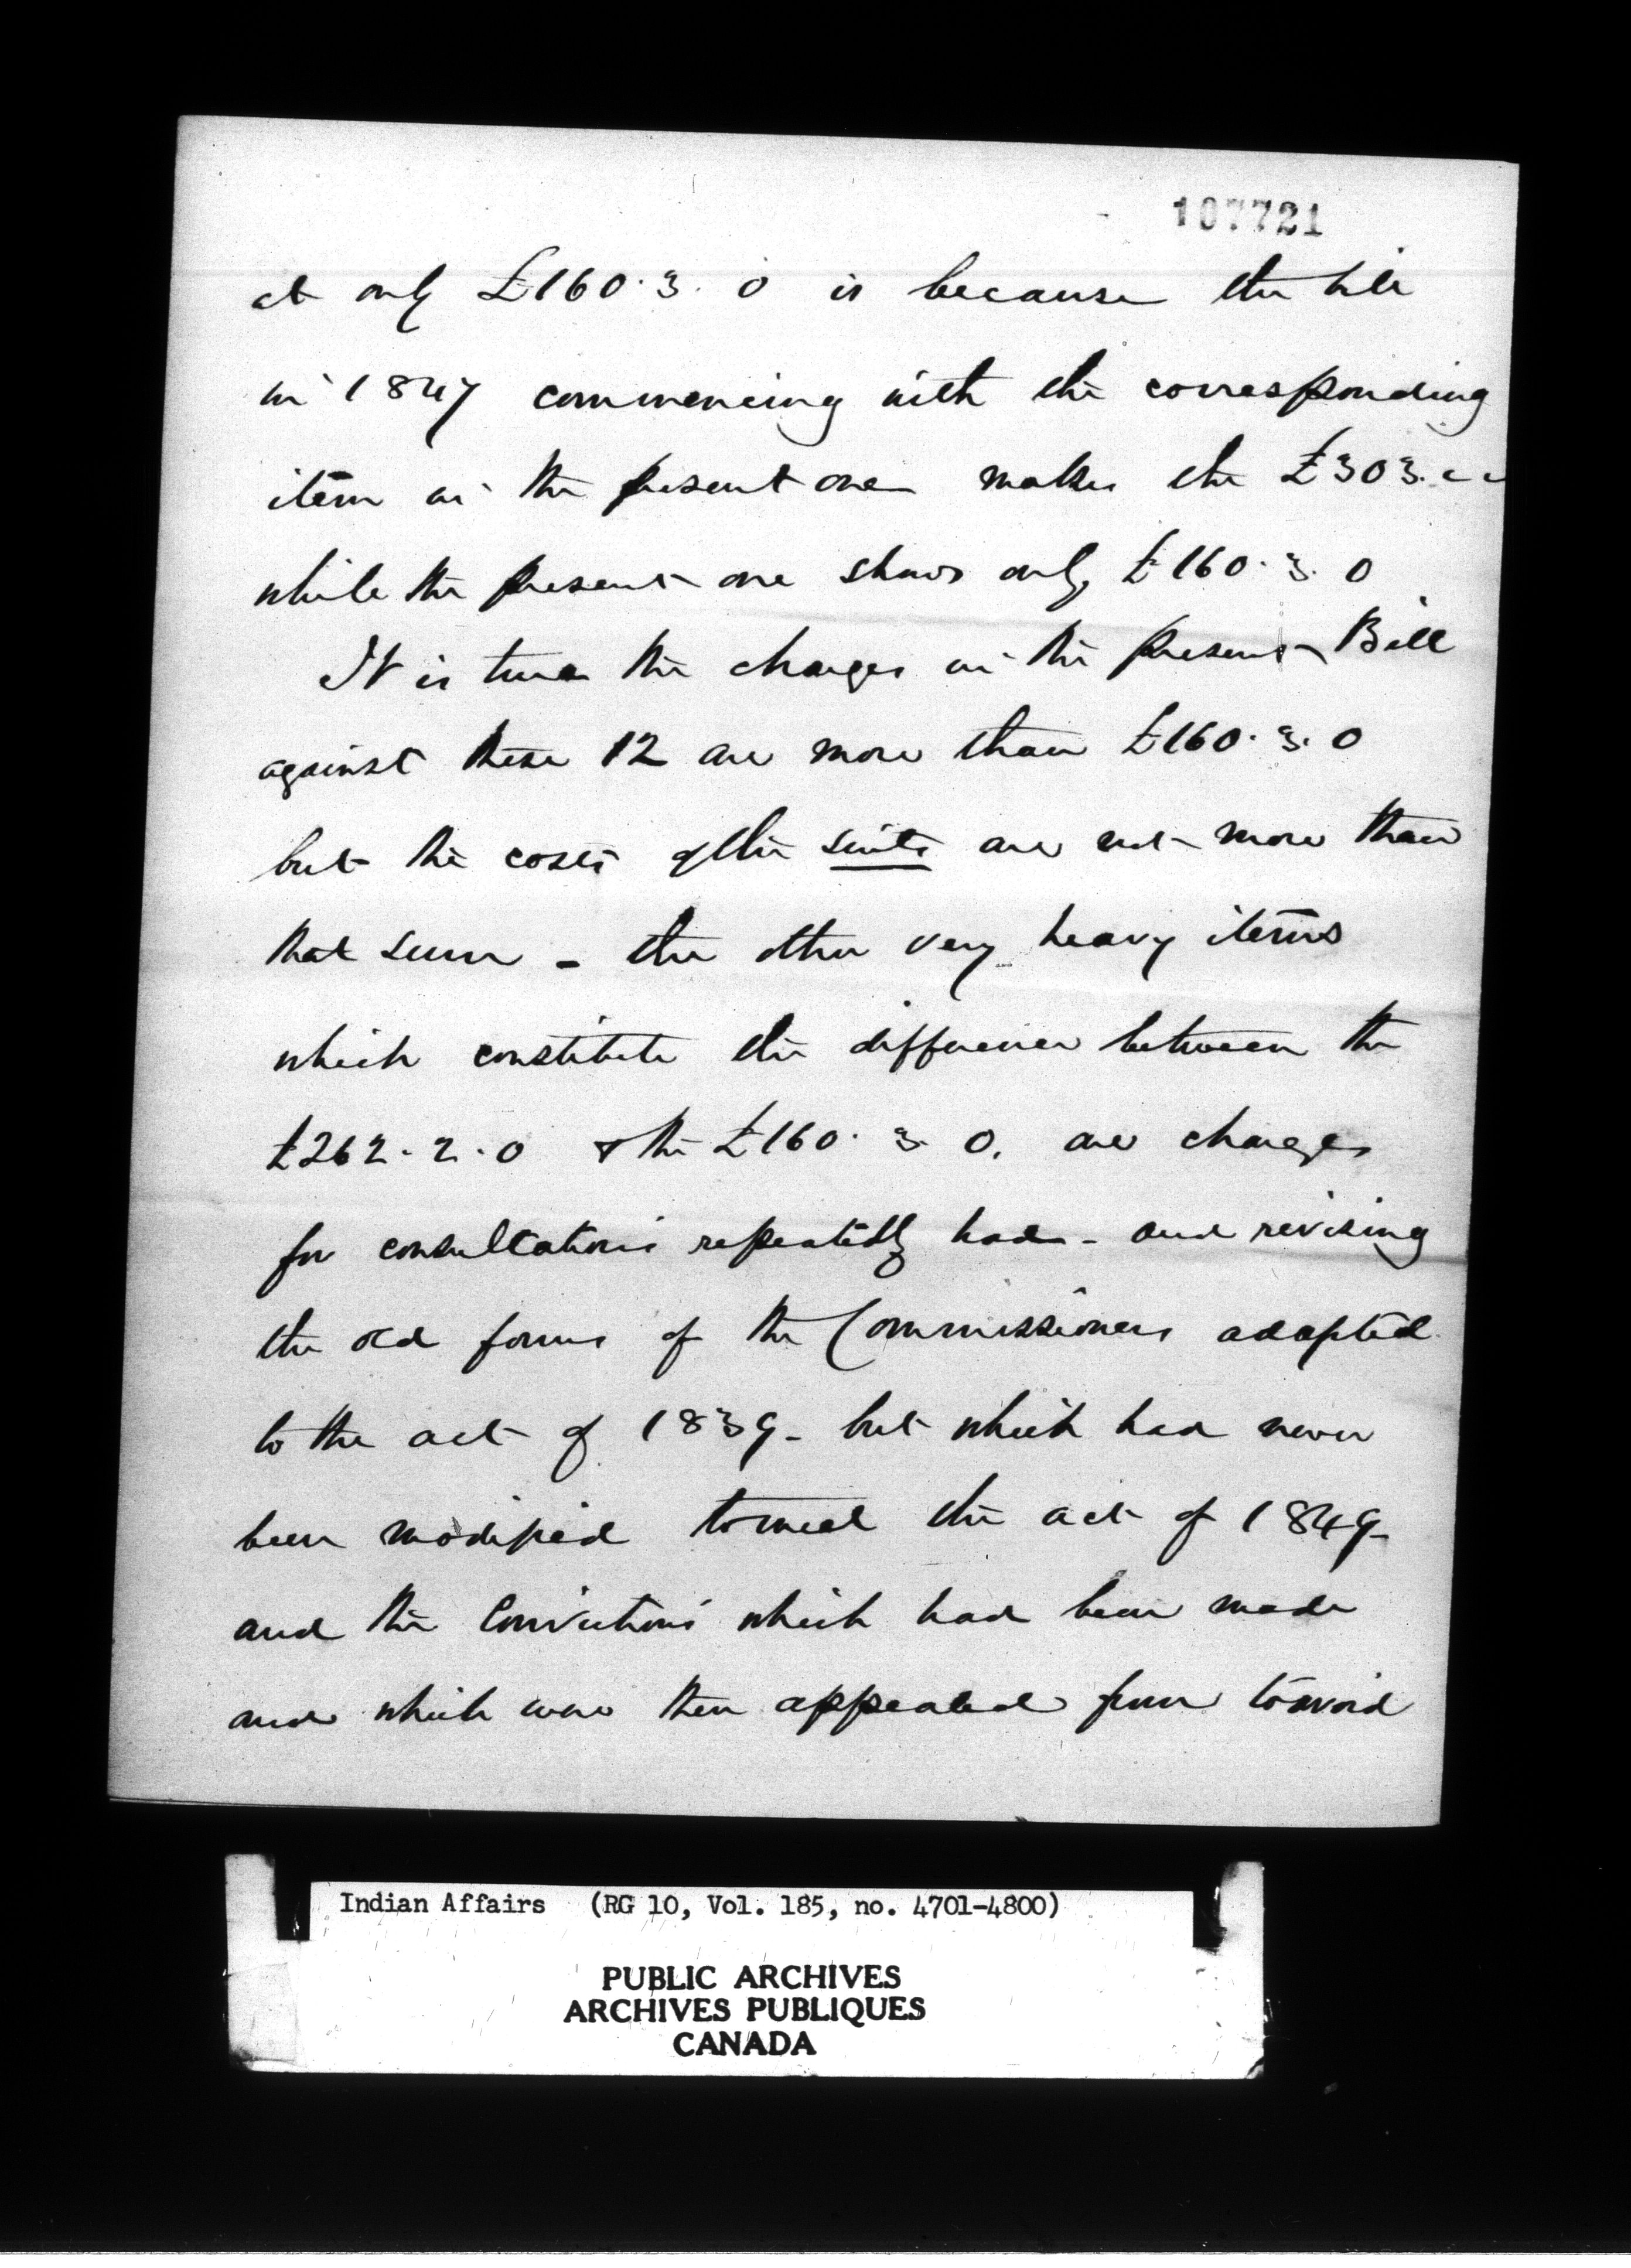 107721
at only £160.3.0 is because the bill
in 1847 commencing with the corresponding
item in the present one makes the £303.
while the present one shows only £160.3.0
It is true the charges in the present Bill
against these 12 are more than £160.3.0
but the costs of the suits are not more than
that sum - the other very heavy items
which constitute the difference between the
£262.2.0 & the £160.3.0. are charges
for consultations repeatedly had - and revising
the old forms of the Commissioners adapted
to the act of 1839 - but which had never
been modified to meet the act of 1849 -
and the Convictions which had been made
and which were then appealed from to avoid
Indian Affairs (RG 10, Vol. 185, no. 4701-4800)
PUBLIC ARCHIVES
ARCHIVES PUBLIQUES
CANADA